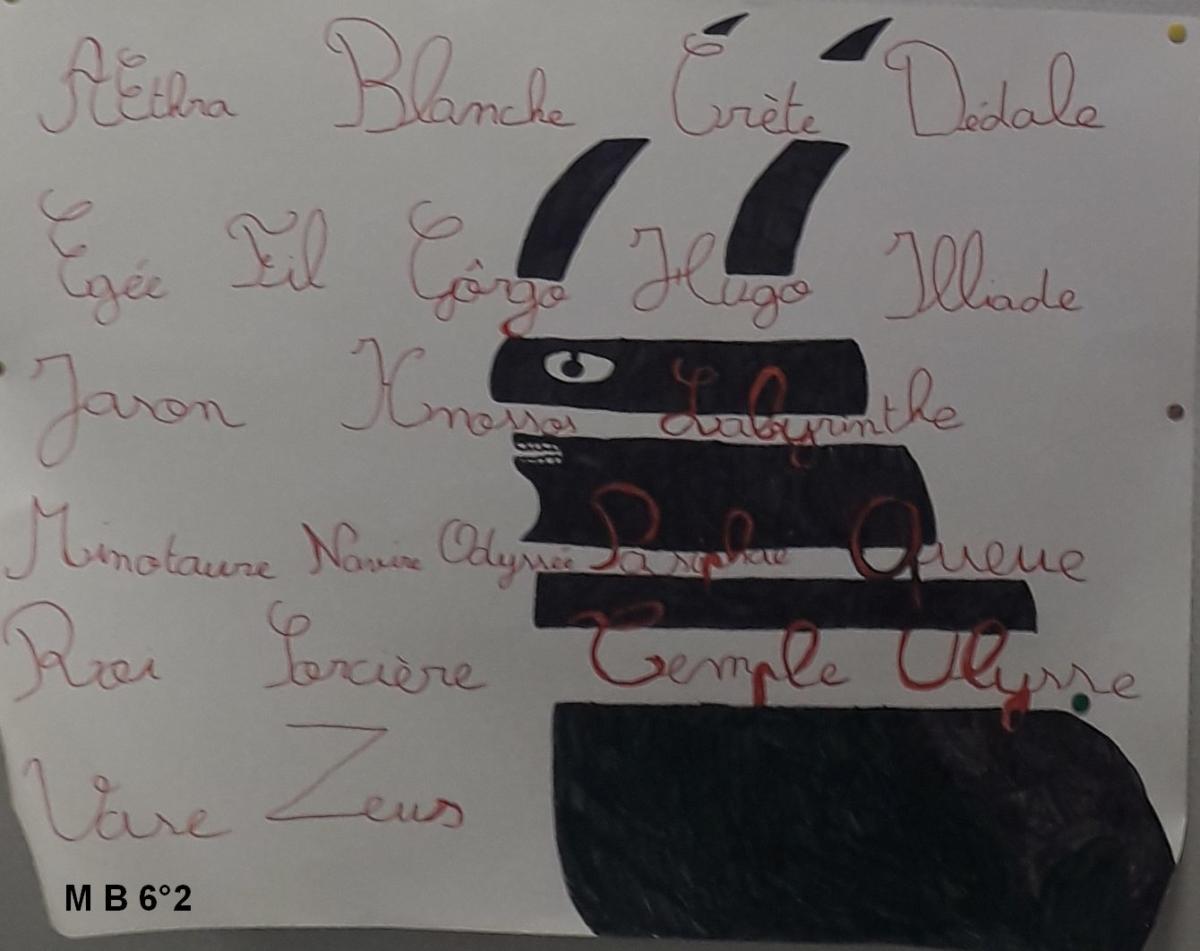 AEthra Blanche Crète Dédale
Egée Fil Gôrgo Hugo Illiade
Jason Knossos Labyrinthe
Minotaure Navire Odyssée Pasiphae Queue
Roi Sorcière Temple Ulysse
Vase Zeus
M B 6°2